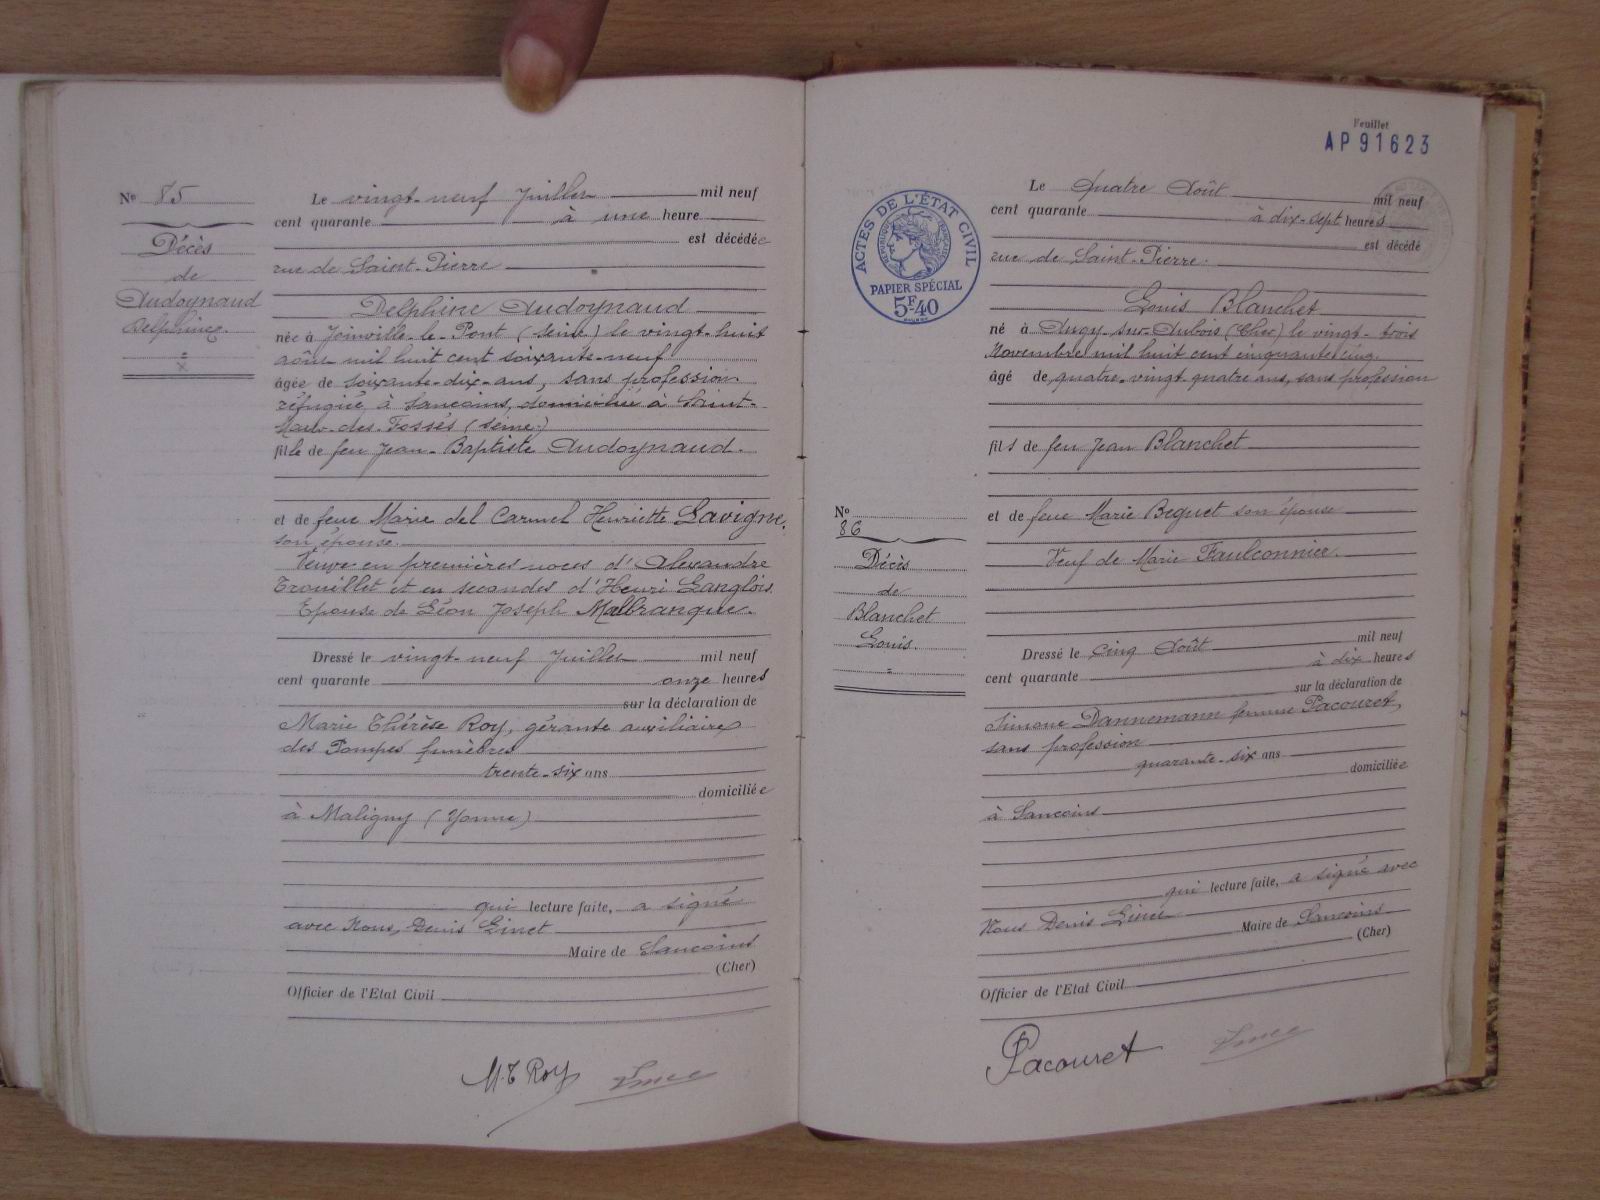 Nº 85
Décès
de
Audoynaud
Delphine.
Le vingt-neuf Juillet mil neuf
cent quarante à une heure
est décédée
rue de Saint-Pierre
Delphine Audoynaud
née à Joinville-le-Pont (Seine) le vingt-huit
août mil huit cent soixante-neuf
âgée de soixante-dix-ans, sans profession
réfugiée à Sancoins, domiciliée à Saint-
Maur-des-Fossés (Seine)
fille de feu Jean-Baptiste Audoynaud.
et de feue Marie del Carmel Henriette Lavigne,
son épouse.
Veuve en premières noces d'Alexandre
Trouillet et en secondes d'Henri Langlois
Epouse de Léon Joseph Malbranque.
Dressé le vingt-neuf Juillet mil neuf
cent quarante onze heures
sur la déclaration de
Marie Thérèse Roy, gérante auxiliaire
des Pompes funèbres
trente-six ans
domiciliée
à Maligny (Yonne)
qui lecture faite, a signé
avec Nous, Denis Linet
Maire de Sancoins
(Cher)
Officier de l'Etat Civil
M.T Roy
Feuillet
AP91623
ACTES DE L'ÉTAT CIVIL
RÉPUBLIQUE FRANÇAISE
PAPIER SPÉCIAL
5F40
Nº
86
Décès
de
Blanchet
Louis.
Le Quatre Août mil neuf
cent quarante à dix-sept heures
est décédé
rue de Saint-Pierre.
Louis Blanchet
né à Augy-sur-Aubois (Cher) le vingt-trois
Novembre mil huit cent cinquante cinq.
âgé de quatre-vingt-quatre ans, sans profession
fils de feu Jean Blanchet
et de feue Marie Beguet son épouse
Veuf de Marie Faulconnier.
Dressé le cinq Août mil neuf
cent quarante à dix heures
sur la déclaration de
Simone Dannemann femme Pacouret,
sans profession
quarante-six ans
domiciliée
à Sancoins
qui lecture faite, a signé avec
Nous Denis Linet Maire de Sancoins
(Cher)
Officier de l'Etat Civil
Pacouret